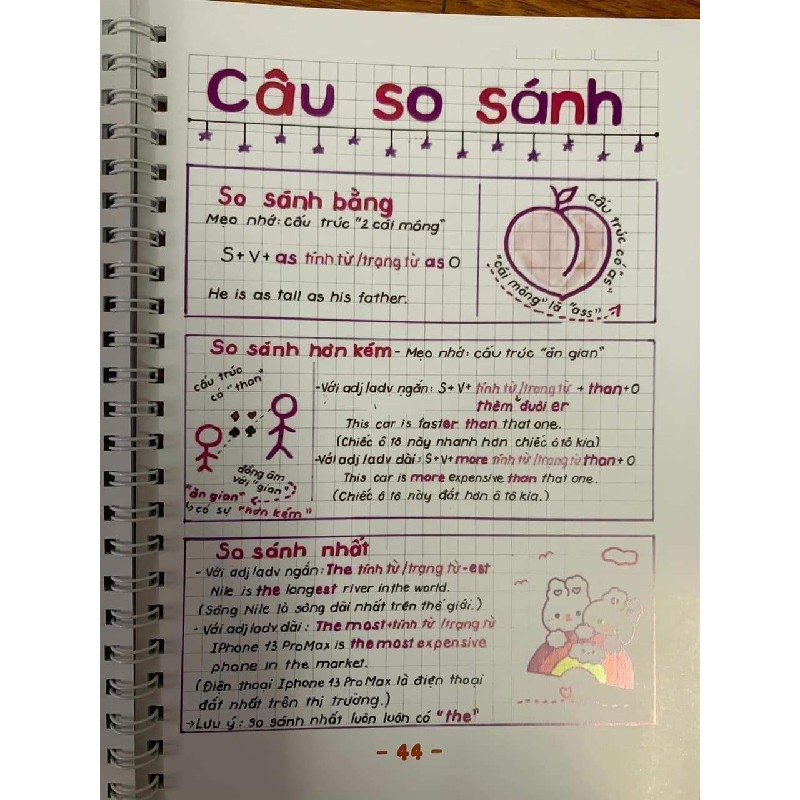 Câu so sánh
So sánh bằng
Mẹo nhớ: cấu trúc "2 cái mông"
S+V+ as tính từ/trạng từ as O
He is as tall as his father.
cấu trúc có "as"
"cái mông" là "ass"
So sánh hơn kém - Mẹo nhớ: cấu trúc "ăn gian"
cấu trúc
có "than"
đồng âm
với "gian"
"ăn gian"
↳ có sự "hơn kém"
-Với adj/adv ngắn: S+V+ tính từ/trạng từ + than+O
thêm đuôi er
This car is faster than that one.
(Chiếc ô tô này nhanh hơn chiếc ô tô kia)
-Với adj/adv dài: S+V+more tính từ/trạng từ than+O
This car is more expensive than that one.
(Chiếc ô tô này đắt hơn ô tô kia.)
So sánh nhất
- Với adj/adv ngắn: The tính từ/trạng từ-est
Nile is the longest river in the world.
(Sông Nile là sông dài nhất trên thế giới.)
- Với adj/adv dài: The most+tính từ/trạng từ
IPhone 13 ProMax is the most expensive
phone in the market.
(Điện thoại Iphone 13 Pro Max là điện thoại
đắt nhất trên thị trường.)
→Lưu ý: so sánh nhất luôn luôn có "the"
- 44 -